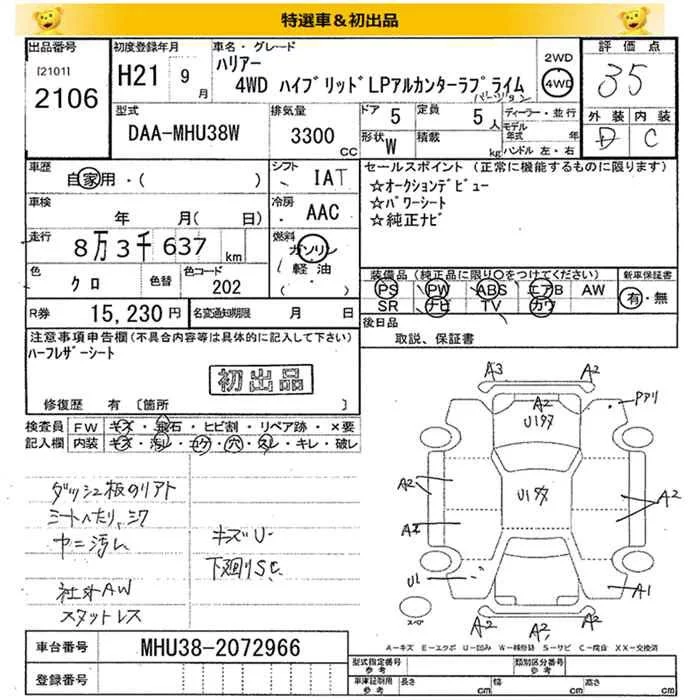 特選車＆初出品
出品番号
[2101]
2106
初度登録年月
H21 9月
車名・グレード
ハリアー
4WD ハイブリッドLPアルカンターラプライム
バージョン
2WD
4WD
評価点
35
外装 内装
D C
型式
DAA-MHU38W
排気量
3300 CC
ドア 5
形状 W
定員 5人
積載 kg
ディーラー・並行
モデル年式 年
ハンドル 左・右
車歴
自家用・( )
シフト
IAT
セールスポイント (正常に機能するものに限ります)
☆オークションデビュー
☆パワーシート
☆純正ナビ
車検
年 月(日)
冷房
AAC
走行
8万3千637 km
燃料
ガソリン
・軽油・
・( )
色
クロ
色替
色コード
202
装備品 (純正品に限り〇をつけてください)
PS PW ABS エアB AW
SR ナビ TV カワ
新車保証書
有・無
R券 15,230円
名変通知期限 月 日
後日品
取説、保証書
注意事項申告欄 (不具合内容等は具体的に記入して下さい)
ハーフレザーシート
初出品
修復歴 有 [箇所 ]
検査員記入欄
FW キズ・飛石・ヒビ割・リペア跡・×要
内装 キズ・汚レ・コゲ・穴・スレ・キレ・破レ
ダッシュ板のリアト
シートヘたり、シワ
ヤニ汚レ
社外AW
スタットレス
キズU
下廻りSC
A3 A2
A2
U1多
Pアリ
A2
U1多
A2
A2
U1
A1
A2 A2 A2
スペア
A－キズ E－エクボ U－凹み W－補修跡 S－サビ C－腐食 XX－交換済
車台番号
MHU38-2072966
登録番号
型式指定番号 参考
類別区分番号 参考
車庫証明用 参考
長さ cm
幅 cm
高さ cm